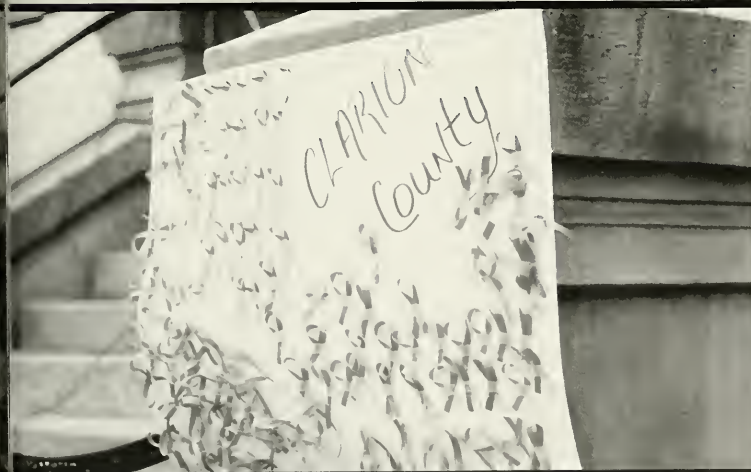 CLARION
County